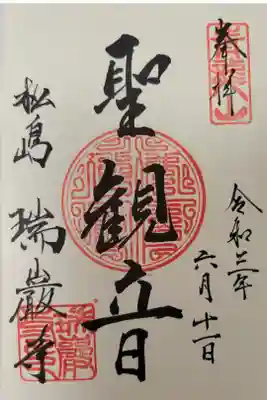 奉拝
令和三年
六月十一日
聖観音
松島 瑞巌寺